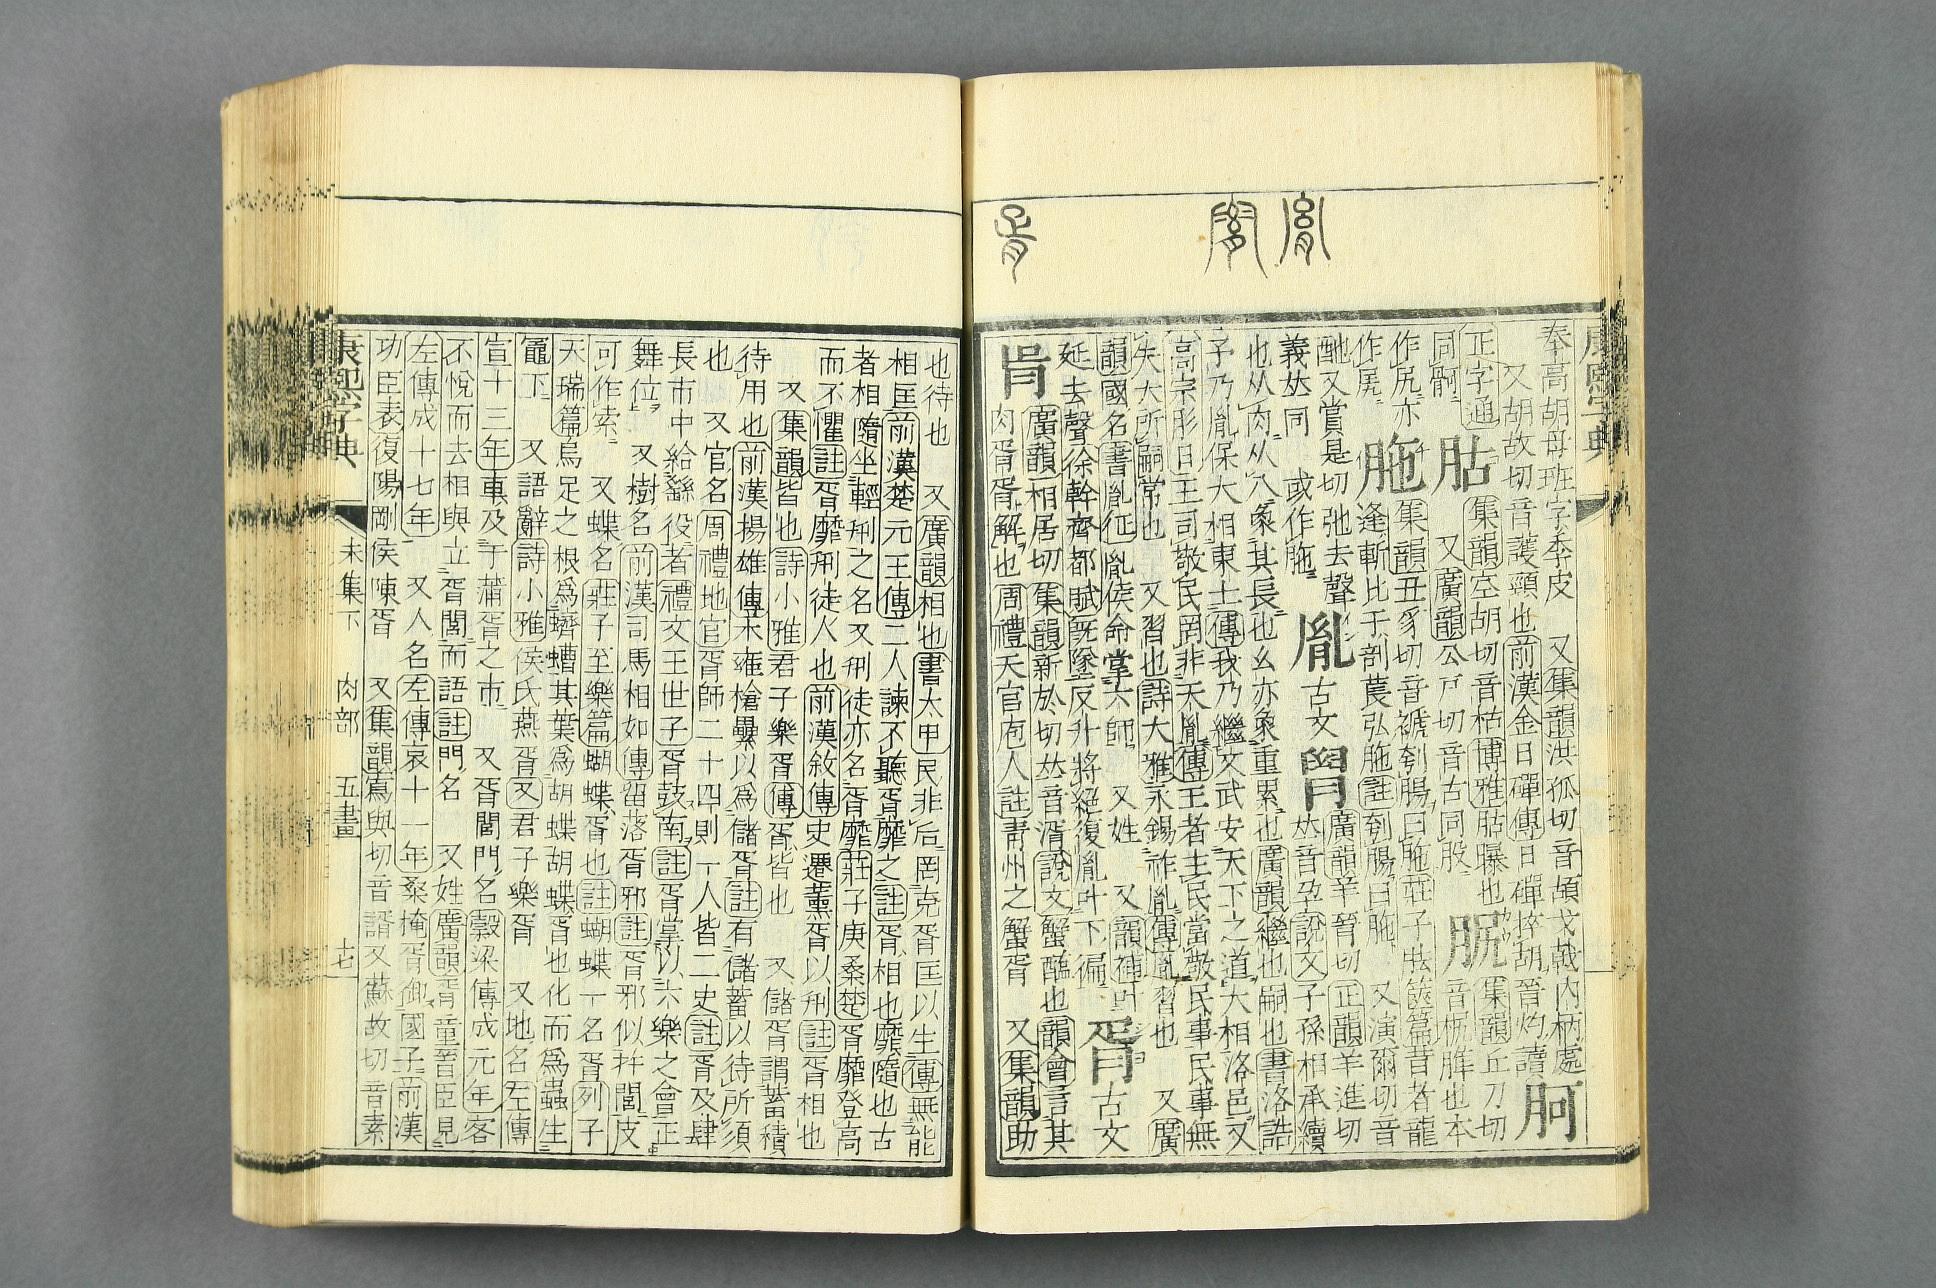 胤
胥
康熙字典
奉高胡母班字季皮 又集韻洪孤切音頡戈戟內柄處
又胡故切音護頸也前漢金日磾傳日磾捽胡晉灼讀 胢
正字通 集韻空胡切音枯博雅胋曝也 集韻丘刀切
同骬 胋 又廣韻公戸切音古同股 音尻脽也本
作尻亦 集韻丑豸切音褫刳腸曰胣莊子胠篋篇昔者龍
作㞘 胣 逢斬比干剖萇弘胣註刳腸曰胣 又演爾切音
酏又賞是切弛去聲 廣韻羊晉切正韻羊進切
義𠀤同 或作 胤 古文 𠀤音孕說文子孫相承續
也从肉从八象其長也幺亦象重累也廣韻繼也嗣也書洛誥
予乃胤保大相東土傳我乃繼文武安天下之道大相洛邑又
高宗肜日王司敬民罔非天胤傳王者主民當敬民事民事無
失大所嗣常也 又習也詩大雅永錫祚胤傳胤習也 又廣
韻國名書胤征胤侯命掌六師 又姓 又韻補叶
延去聲徐幹齊都賦旣墜反升將絕復胤叶下徧 胥 古文
廣韻相居切集韻新於切𠀤音湑說文蟹醢也韻會言其
肉胥胥解也周禮天官庖人註靑州之蟹胥 又集韻助
也待也 又廣韻相也書太甲民非后罔克胥匡以生傳無能
相匡前漢楚元王傳二人諫不聽胥靡之註胥相也靡隨也古
者相隨坐輕刑之名又刑徒亦名胥靡莊子庚桑楚胥靡登高
而不懼註胥靡刑徒人也前漢敘傳史遷薰胥以刑註胥相也
又集韻皆也詩小雅君子樂胥傳胥皆也 又儲胥謂蓄積
待用也前漢揚雄傳木雍槍纍以爲儲胥註有儲蓄以待所須
也 又官名周禮地官胥師二十四則一人皆二史註胥及肆
長市中給繇役者禮文王世子胥鼓南註胥掌以六樂之會正
舞位 又樹名前漢司馬相如傳留落胥邪註胥邪似幷閭皮
可作索 又蝶名莊子至樂篇蝴蝶胥也註蝴蝶一名胥列子
天瑞篇烏足之根爲蠐螬其葉爲胡蝶胡蝶胥也化而爲蟲生
竈下 又語辭詩小雅侯氏燕胥又君子樂胥 又地名左傳
宣十三年車及于蒲胥之市 又胥閭門名穀梁傳成元年客
不悅而去相與立胥閭而語註門名 又姓廣韻胥童晉臣見
左傳成十七年 又人名左傳哀十一年桑掩胥御國子前漢
功臣表復陽剛侯陳胥 又集韻寫與切音諝又蘇故切音素
康熙字典 未集下 肉部 五畫 十七